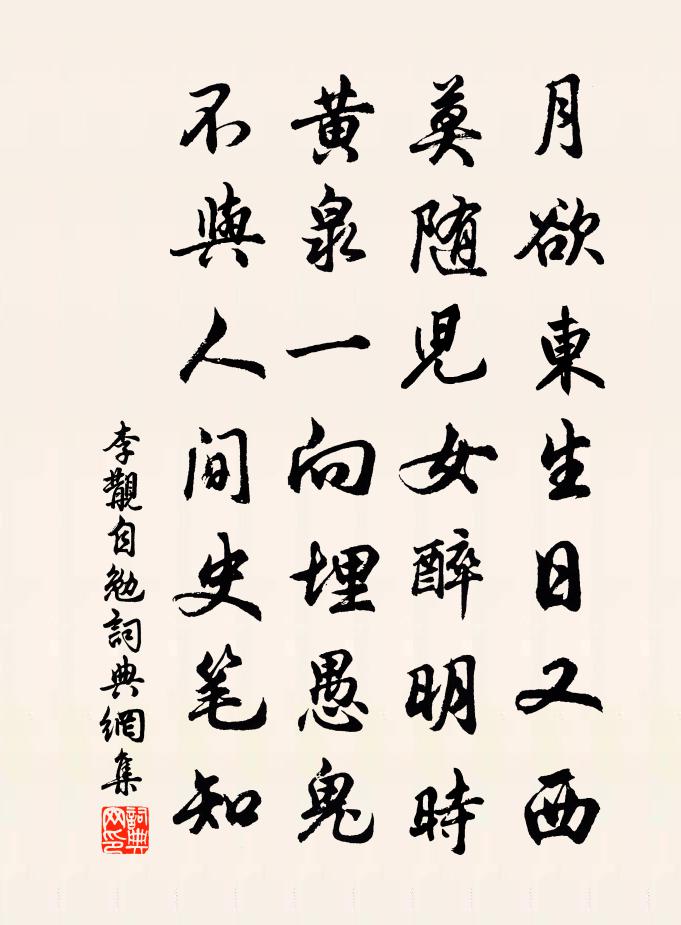 月欲東生日又西
莫随兒女醉明時
黄泉一向埋愚鬼
不與人间史笔知
李觀自勉詞典網集
詞典网印